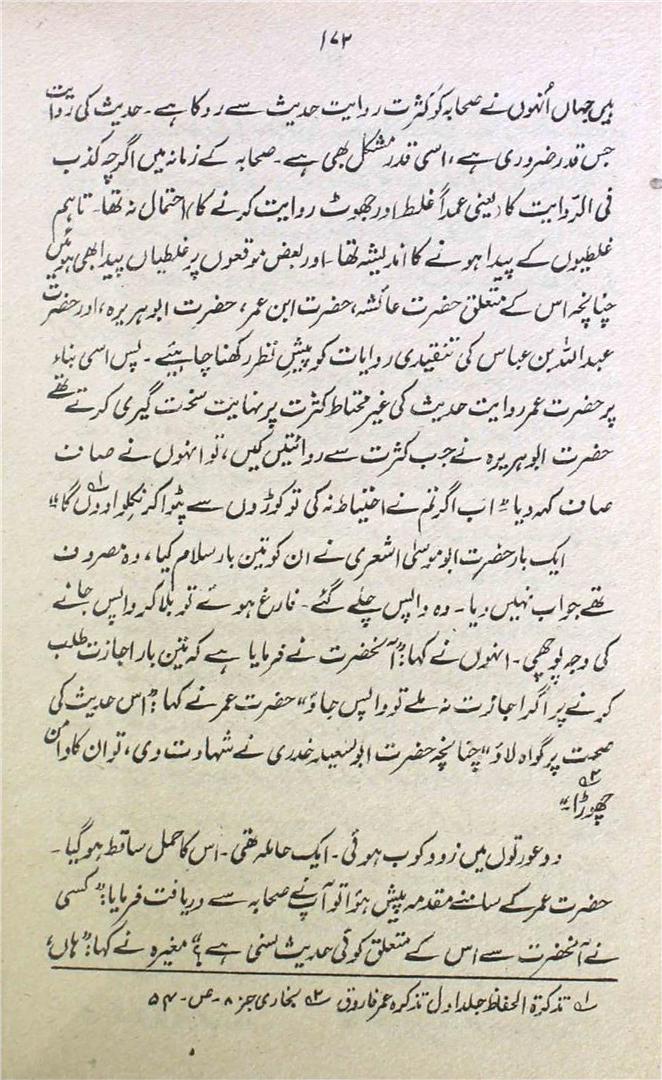 ۱۷۲
ہیں جہاں اُنہوں نے صحابہ کو کثرت روایت حدیث سے روکا ہے۔ حدیث کی روایت
جس قدر ضروری ہے، اسی قدر مشکل بھی ہے۔ صحابہ کے زمانہ میں اگرچہ کذب
فی الروایت کا (یعنی عمداً غلط اور جھوٹ روایت کرنے کا) احتمال نہ تھا۔ تاہم
غلطیوں کے پیدا ہونے کا اندیشہ تھا۔ اور بعض موقعوں پر غلطیاں پیدا بھی ہوئیں
چنانچہ اس کے متعلق حضرت عائشہ، حضرت ابن عمر، حضرت ابوہریرہ، اور حضرت
عبداللہ بن عباس کی تنقیدی روایات کو پیشِ نظر رکھنا چاہیئے۔ پس اسی بناء
پر حضرت عمر روایت حدیث کی غیر محتاط کثرت پر نہایت سخت گیری کرتے تھے
حضرت ابوہریرہ نے جب کثرت سے روائتیں کیں، تو انہوں نے صاف
صاف کہہ دیا "اب اگر تم نے احتیاط نہ کی تو کوڑوں سے پٹوا کر نکلوا دوں گا" ۱؎
ایک بار حضرت ابوموسٰی اشعری نے ان کو تین بار سلام کیا، وہ مصروف
تھے جواب نہیں دیا۔ وہ واپس چلے گئے۔ فارغ ہوئے تو بلا کر واپس جانے
کی وجہ پوچھی۔ انہوں نے کہا: "آنحضرت نے فرمایا ہے کہ تین بار اجازت طلب
کرنے پر اگر اجازت نہ ملے تو واپس جاؤ" حضرت عمر نے کہا: "اس حدیث کی
صحت پر گواہ لاؤ" چنانچہ حضرت ابوسعید خدری نے شہادت دی، تو ان کا دامن
چھوڑا۔" ۲؎
دو عورتوں میں زد و کوب ہوئی۔ ایک حاملہ تھی۔ اس کا حمل ساقط ہو گیا۔
حضرت عمر کے سامنے مقدمہ پیش ہؤا تو آپ نے صحابہ سے دریافت فرمایا: "کسی
نے آنحضرت سے اس کے متعلق کوئی حدیث سنی ہے؟" مغیرہ نے کہا: "ہاں،
۱؎ تذکرۃ الحفاظ جلد اول تذکرہ عمر فاروق ۲؎ بخاری جز ۸۔ ص۔ ۵۴